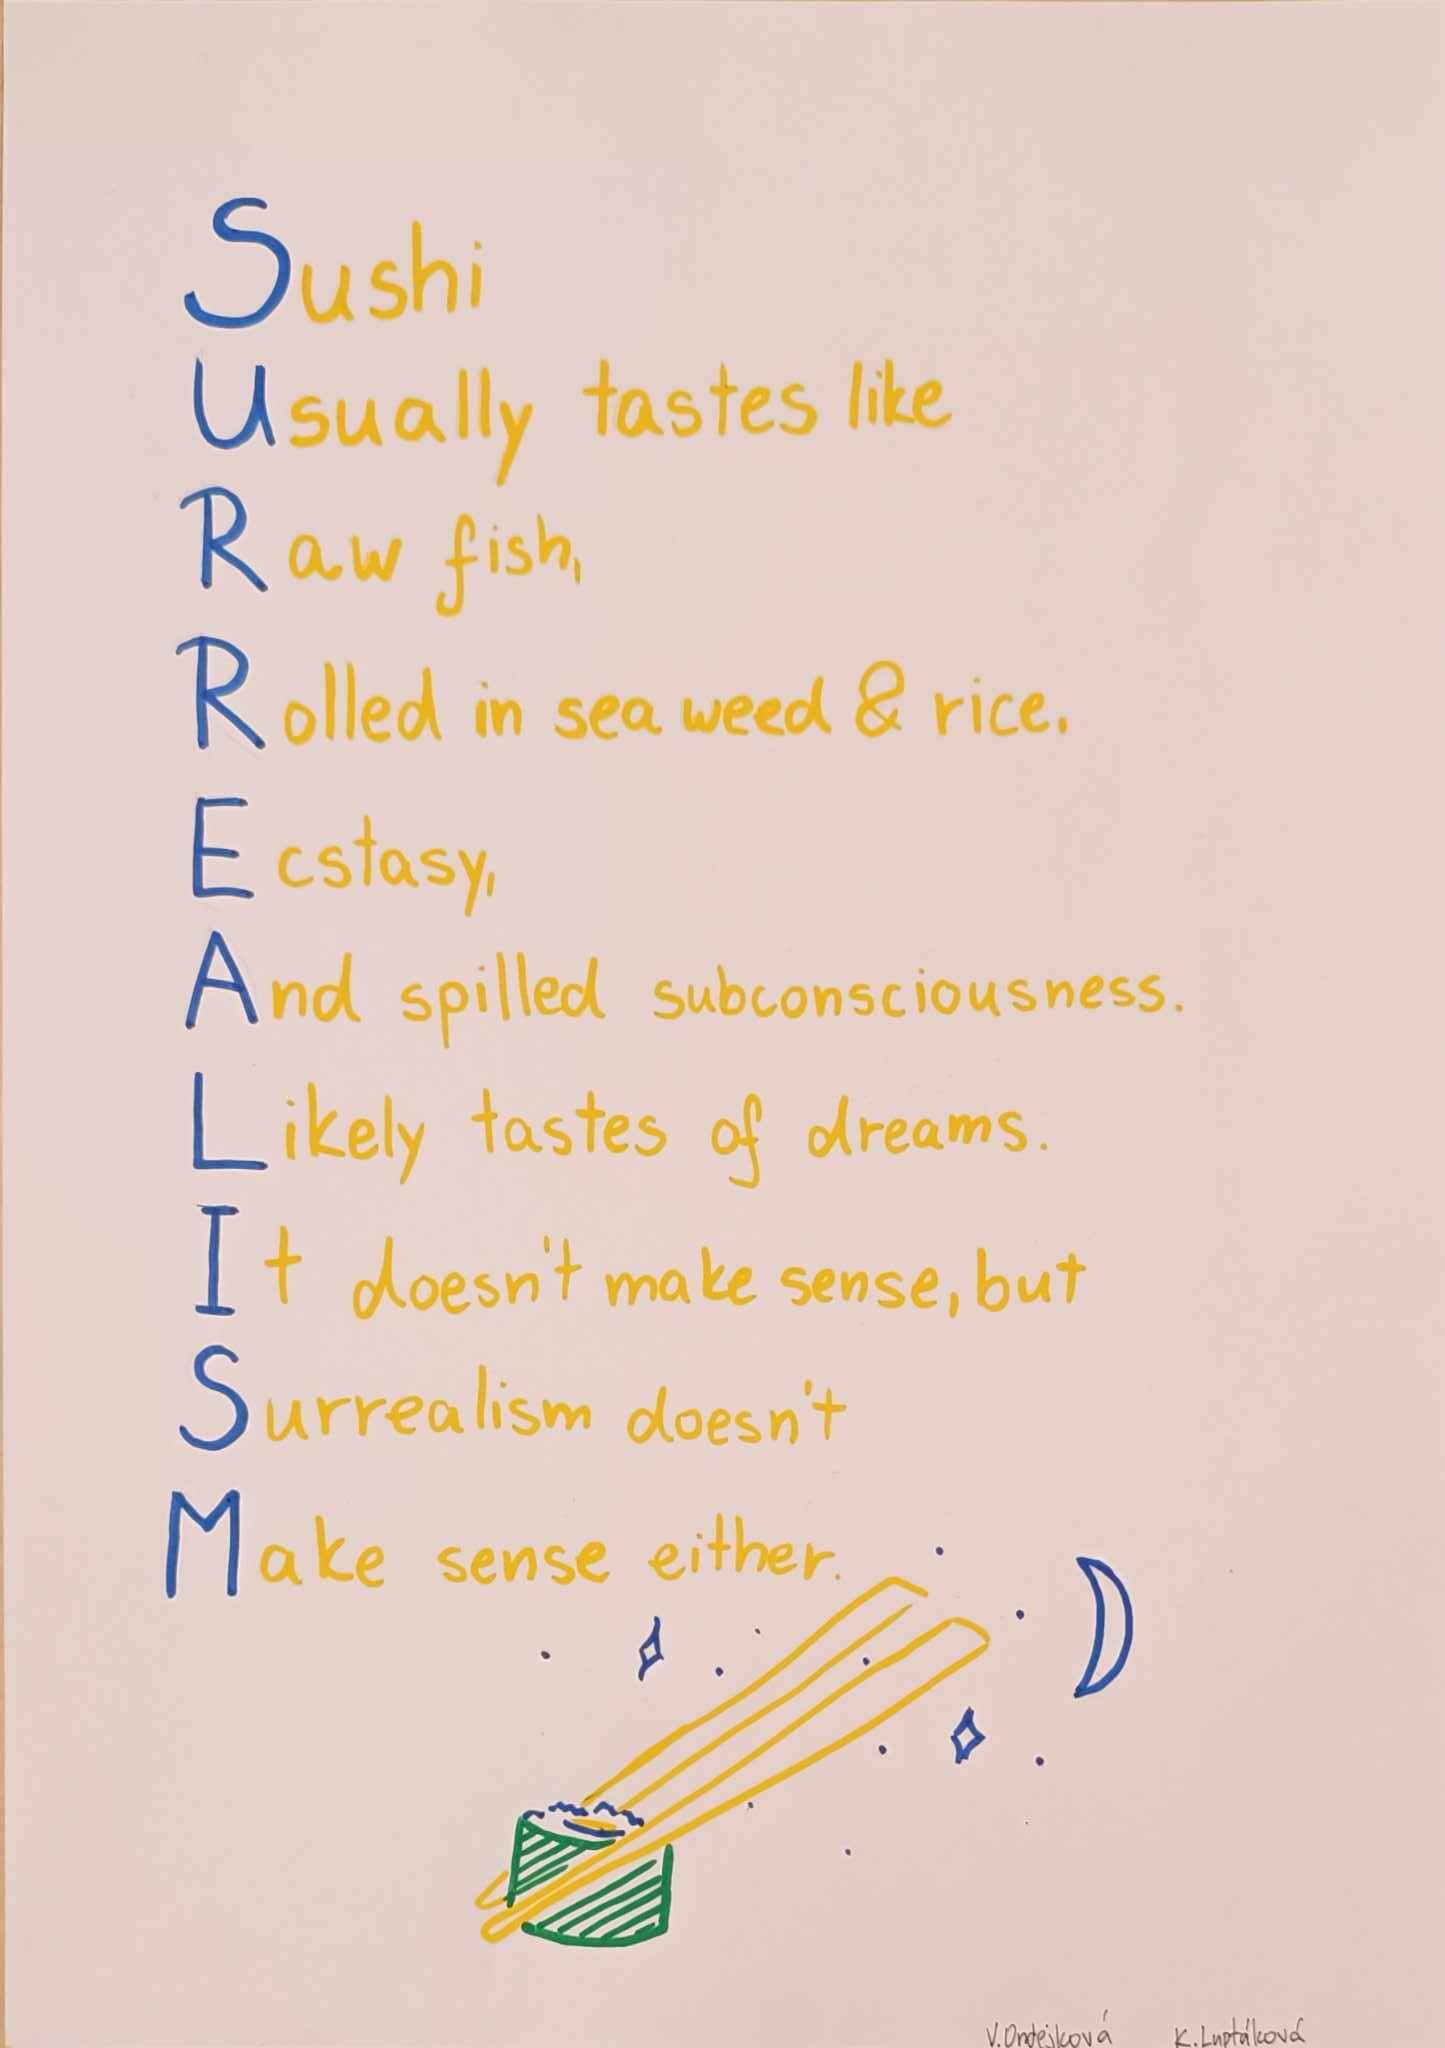 Sushi
Usually tastes like
Raw fish,
Rolled in sea weed & rice.
Ecstasy,
And spilled subconsciousness.
Likely tastes of dreams.
It doesn't make sense, but
Surrealism doesn't
Make sense either.
V. Ondejková K. Luptáková